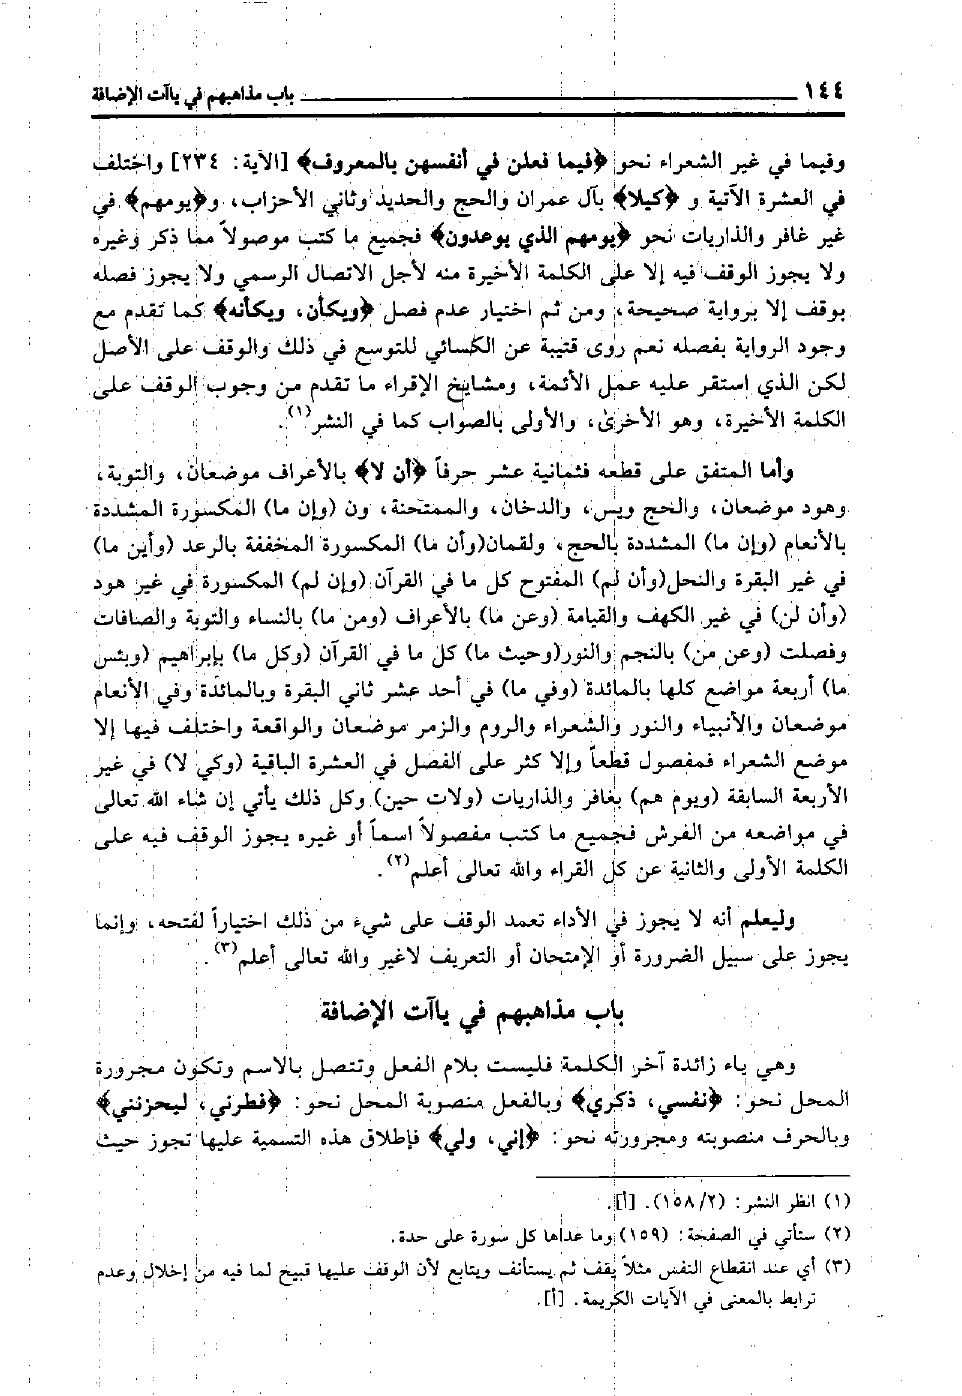 ١٤٤ باب مذاهبهم في ياآت الإضافة
وفيما في غير الشعراء نحو ﴿فيما فعلن في أنفسهن بالمعروف﴾ [الآية: ٢٣٤] واختلف
في العشرة الآتية و ﴿كيلا﴾ بآل عمران والحج والحديد وثاني الأحزاب، و﴿يومهم﴾ في
غير غافر والذاريات نحو ﴿يومهم الذي يوعدون﴾ فجميع ما كتب موصولاً مما ذكر وغيره
ولا يجوز الوقف فيه إلا على الكلمة الأخيرة منه لأجل الاتصال الرسمي ولا يجوز فصله
بوقف إلا برواية صحيحة، ومن ثم اختيار عدم فصل ﴿ويكأن، ويكأنه﴾ كما تقدم مع
وجود الرواية بفصله نعم روى قتيبة عن الكسائي للتوسع في ذلك والوقف على الأصل
لكن الذي استقر عليه عمل الأئمة، ومشايخ الإقراء ما تقدم من وجوب الوقف على
الكلمة الأخيرة، وهو الأخرى، والأولى بالصواب كما في النشر(١).
وأما المتفق على قطعه فثمانية عشر حرفاً ﴿أن لا﴾ بالأعراف موضعان، والتوبة،
وهود موضعان، والحج ويس، والدخان، والممتحنة، ون (وإن ما) المكسورة المشددة
بالأنعام (وإن ما) المشددة بالحج، ولقمان(وأن ما) المكسورة المخففة بالرعد (وأين ما)
في غير البقرة والنحل(وأن لم) المفتوح كل ما في القرآن (وإن لم) المكسورة في غير هود
(وأن لن) في غير الكهف والقيامة (وعن ما) بالأعراف (ومن ما) بالنساء والتوبة والصافات
وفصلت (وعن من) بالنجم والنور(وحيث ما) كل ما في القرآن (وكل ما) بإبراهيم (وبئس
ما) أربعة مواضع كلها بالمائدة (وفي ما) في أحد عشر ثاني البقرة وبالمائدة وفي الأنعام
موضعان والأنبياء والنور والشعراء والروم والزمر موضعان والواقعة واختلف فيها إلا
موضع الشعراء فمفصول قطعاً وإلا كثر على الفصل في العشرة الباقية (وكي لا) في غير
الأربعة السابقة (ويوم هم) بغافر والذاريات (ولات حين) وكل ذلك يأتي إن شاء الله تعالى
في مواضعه من الفرش فجميع ما كتب مفصولاً اسماً أو غيره يجوز الوقف فيه على
الكلمة الأولى والثانية عن كل القراء والله تعالى أعلم(٢).
وليعلم أنه لا يجوز في الأداء تعمد الوقف على شيء من ذلك اختياراً لفتحه، وإنما
يجوز على سبيل الضرورة أو الإمتحان أو التعريف لاغير والله تعالى أعلم(٣).
باب مذاهبهم في ياآت الإضافة
وهي ياء زائدة آخر الكلمة فليست بلام الفعل وتتصل بالاسم وتكون مجرورة
المحل نحو: ﴿نفسي، ذكري﴾ وبالفعل منصوبة المحل نحو: ﴿فطرني، ليحزنني﴾
وبالحرف منصوبته ومجرورته نحو: ﴿إني، ولي﴾ فإطلاق هذه التسمية عليها تجوز حيث
(١) انظر النشر: (٢/ ١٥٨). [أ].
(٢) ستأتي في الصفحة: (١٥٩) وما عداها كل سورة على حدة.
(٣) أي عند انقطاع النفس مثلاً يقف ثم يستأنف ويتابع لأن الوقف عليها قبيح لما فيه من إخلال وعدم
ترابط بالمعنى في الآيات الكريمة. [أ].